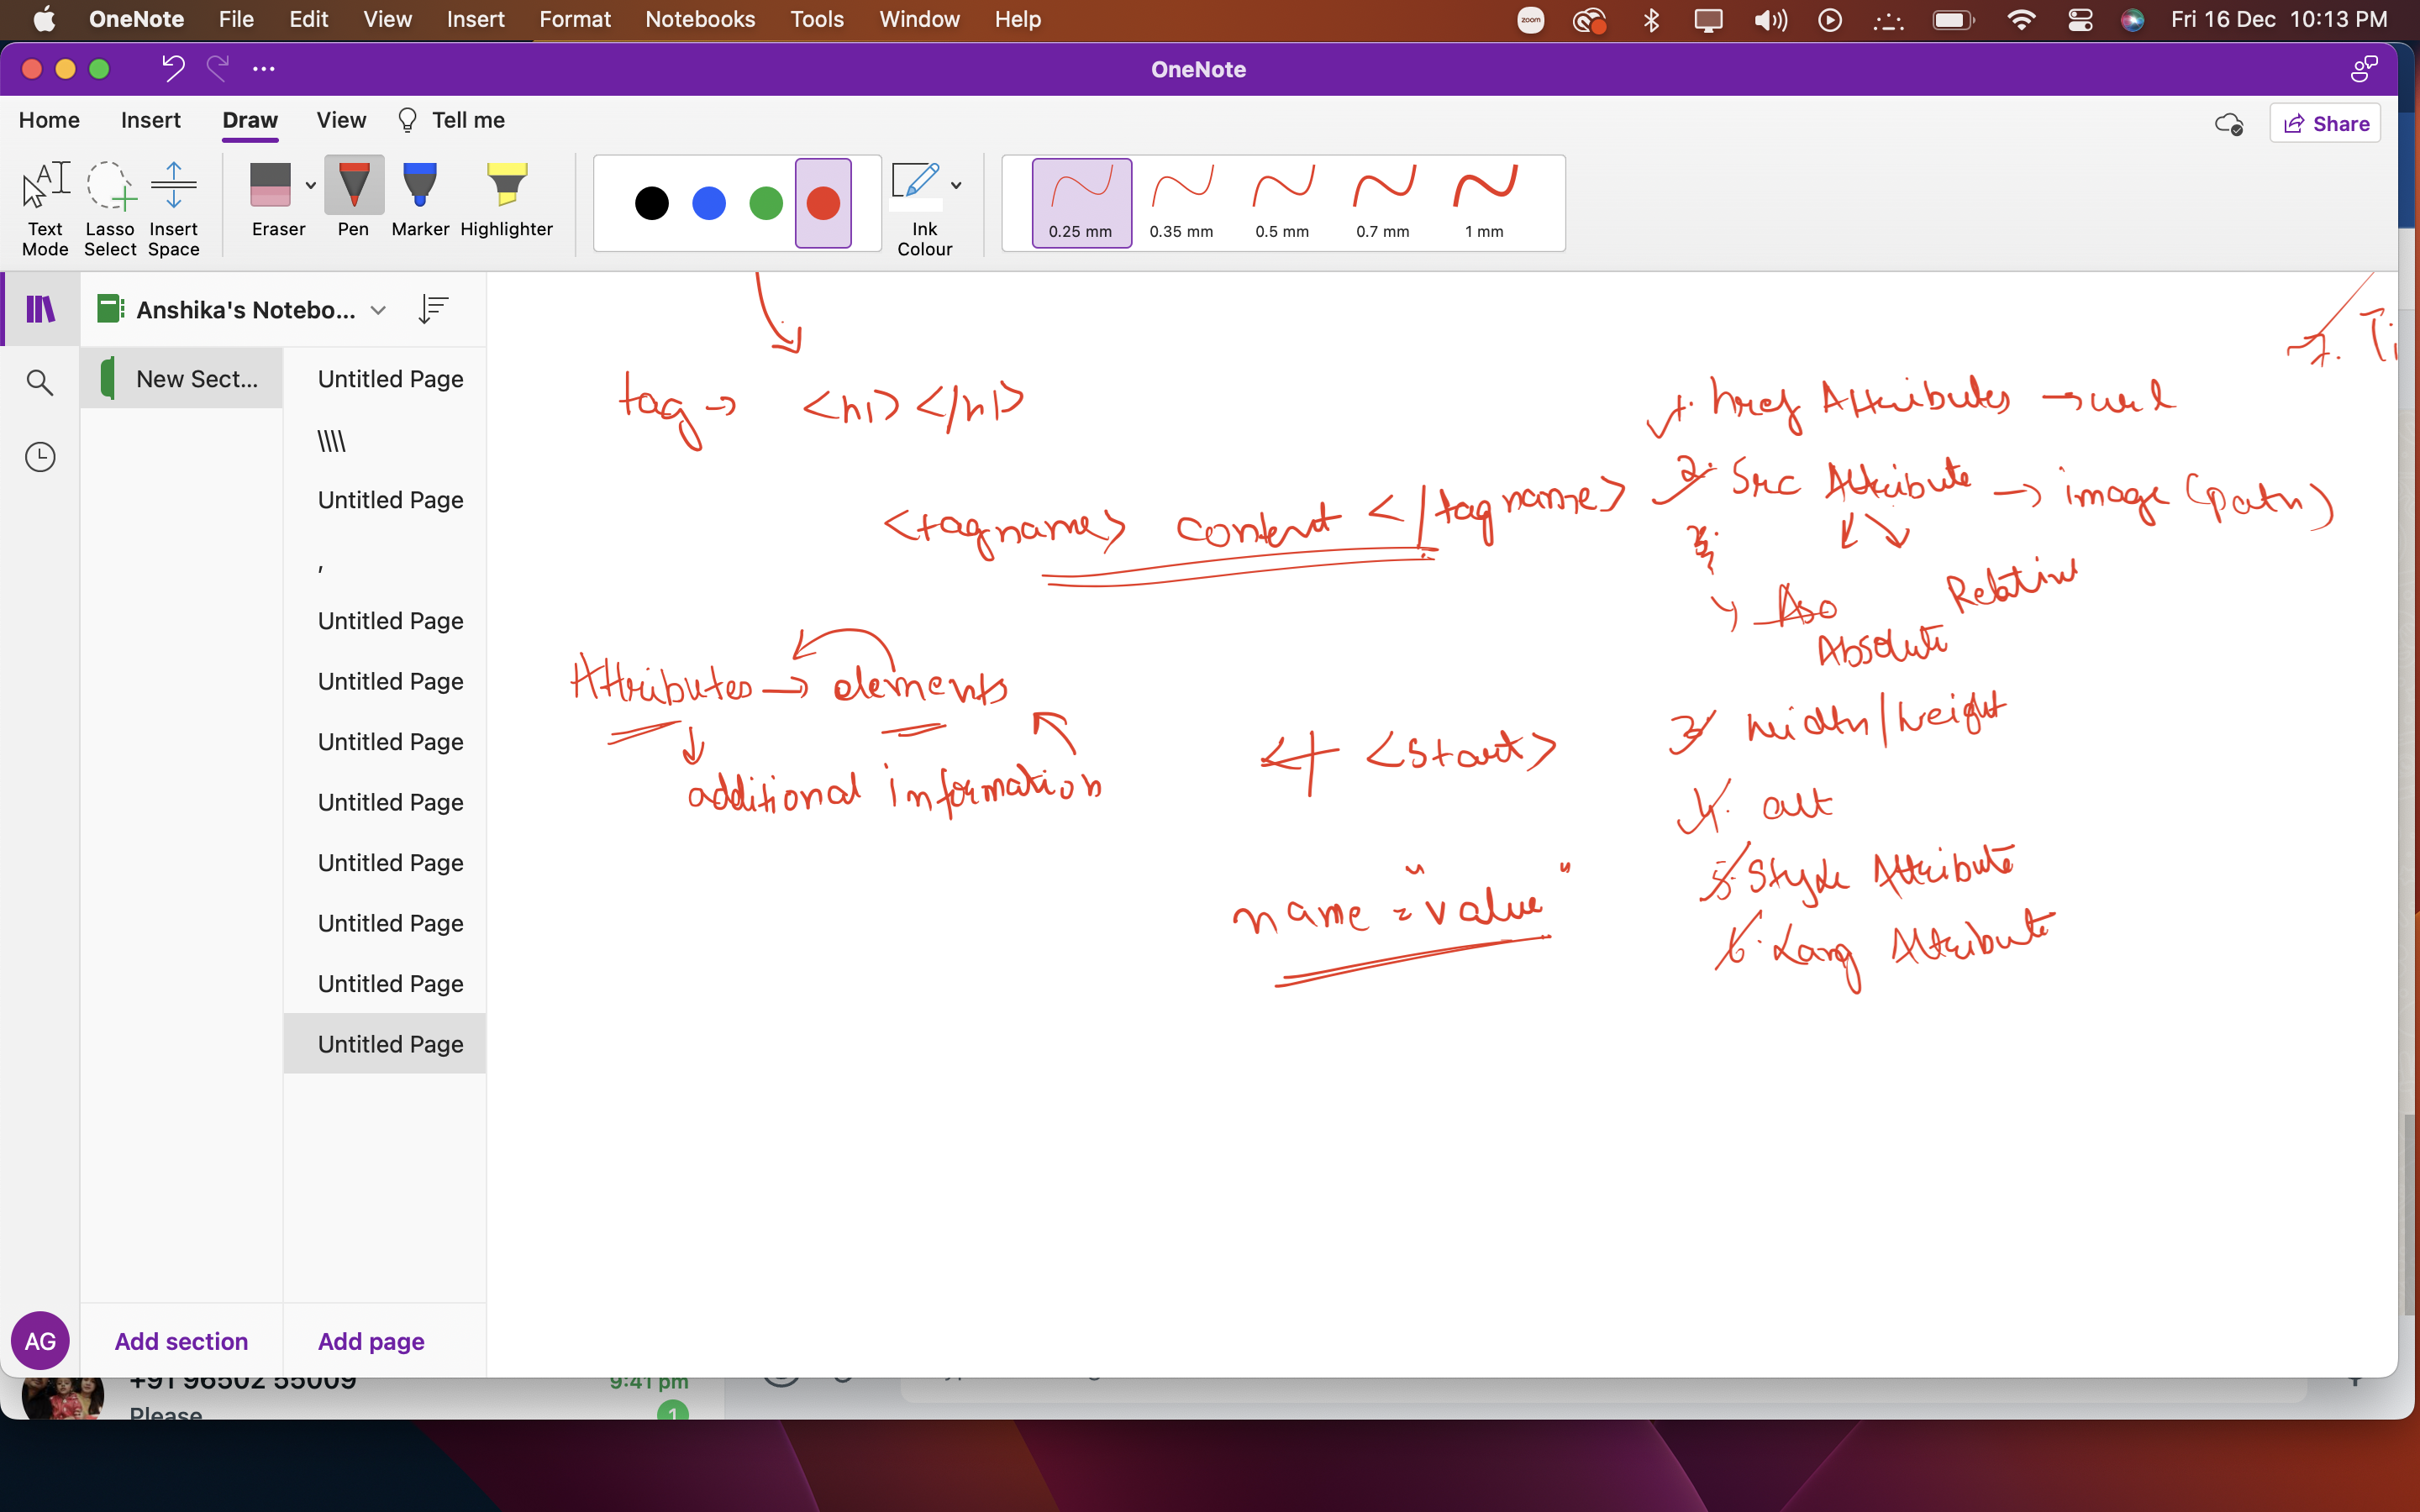 OneNote File Edit View Insert Format Notebooks Tools Window Help zoom Fri 16 Dec 10:13 PM
OneNote
Home Insert Draw View Tell me Share
Text Mode Lasso Select Insert Space Eraser Pen Marker Highlighter Ink Colour 0.25 mm 0.35 mm 0.5 mm 0.7 mm 1 mm
Anshika's Notebo...
New Sect...
Untitled Page
\\\\
Untitled Page
,
Untitled Page
Untitled Page
Untitled Page
Untitled Page
Untitled Page
Untitled Page
Untitled Page
Untitled Page
AG Add section Add page
tag → <h1> </h1>
<tagname> content </tagname>
Attributes → elements
additional information
< <start>
name = "value"
7. Ti
1. href Attributes → url
2. Src Attribute → image (path)
3.
Abso Relative
Absolute
3 width/height
4. alt
5. Style Attribute
6. Lang Attribute
+91 96502 55009 9:41 pm
Please 1